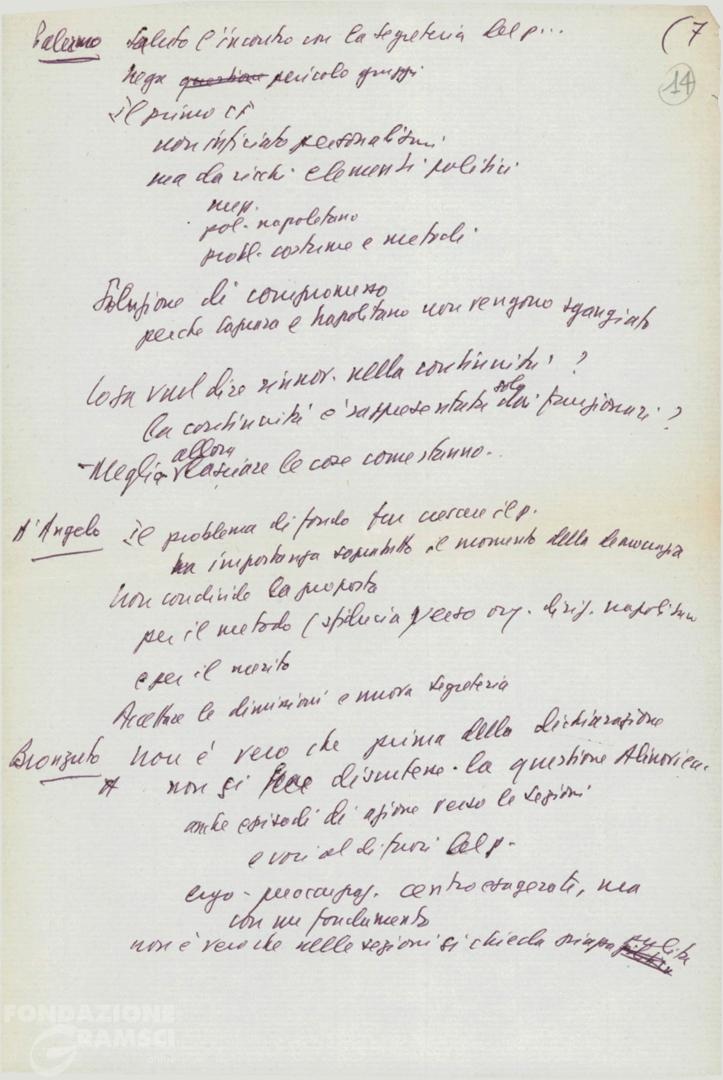 (7
14
Palermo saluto l'incontro con la segreteria del p...
nega questione pericolo gruppi
Il primo cf
non inficiato personalismi
ma da ricchi elementi politici
pol. napoletano
probl. costume e metodi
Soluzione di compromesso
perche Caprara e Napolitano non vengono sganciati
Cosa vuol dire rinnov. nella continuità?
la continuità è rappresentata solo dai funzionari?
- Meglio allora lasciare le cose come stanno.
D'Angelo Il problema di fondo far crescere il p.
ha importanza soprattutto il momento della democrazia
Non condivide la proposta
per il metodo (sfiducia verso org. dirig. napoletano
e per il merito
Accettare le dimissioni e nuova segreteria
Bronzuto Non è vero che prima della dichiarazione
A non si discutesse la questione Alinovi
anche episodi di azione verso le sezioni
e voci al di fuori del p.
ergo - preoccupaz. centro esagerate, ma
con un fondamento
non è vero che nelle sezioni si chieda
FONDAZIONE
GRAMSCI